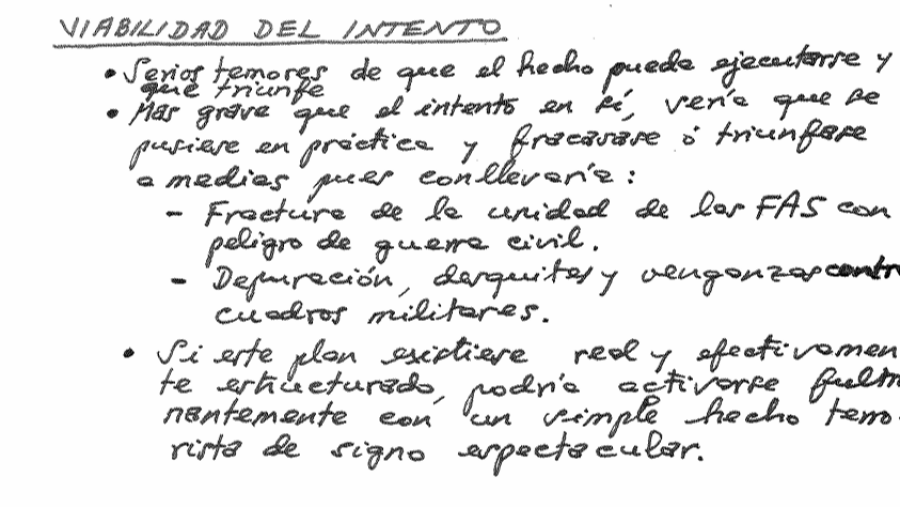 VIABILIDAD DEL INTENTO
• Serios temores de que el hecho pueda ejecutarse y
que triunfe
• Más grave que el intento en sí, vería que se
pusiese en práctica y fracasase ó triunfase
a medias pues conllevaría:
- Fractura de la unidad de las FAS con
peligro de guerra civil.
- Depuración, desquites y venganzas contr
cuadros militares.
• Si este plan existiese real y efectivamen
te estructurado, podría activarse fulmi
nantemente con un simple hecho terro-
rista de signo espectacular.